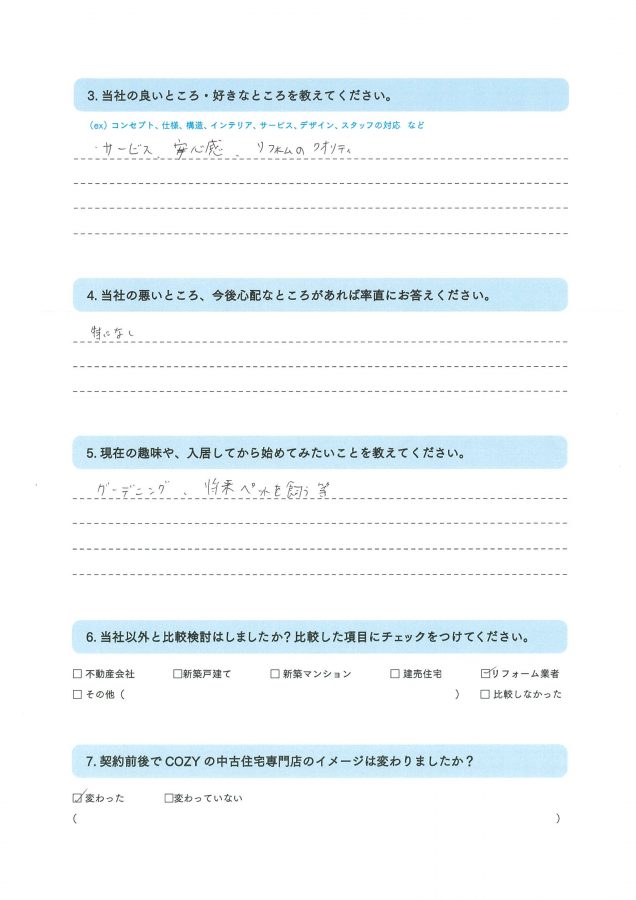 3. 当社の良いところ・好きなところを教えてください。
（ex）コンセプト、仕様、構造、インテリア、サービス、デザイン、スタッフの対応 など
・サービス、安心感、リフォームのクオリティ
4. 当社の悪いところ、今後心配なところがあれば率直にお答えください。
特になし
5. 現在の趣味や、入居してから始めてみたいことを教えてください。
ガーデニング、将来ペットを飼う等
6. 当社以外と比較検討はしましたか？比較した項目にチェックをつけてください。
☐ 不動産会社 ☐新築戸建て ☐ 新築マンション ☐ 建売住宅 ☑リフォーム業者
☐ その他（ ） ☐ 比較しなかった
7. 契約前後で COZY の中古住宅専門店のイメージは変わりましたか？
☑変わった ☐変わっていない
（ ）